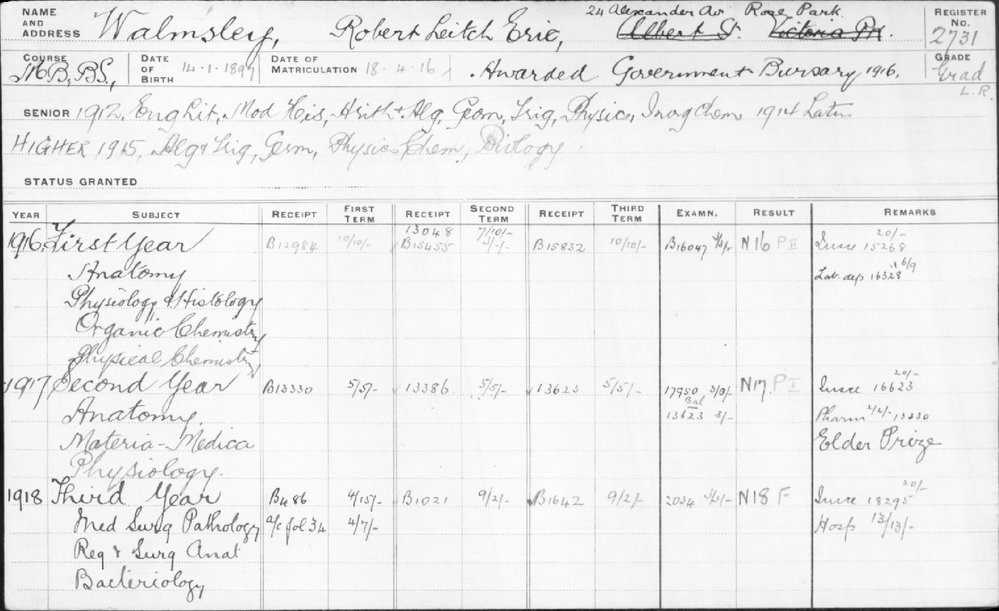 NAME AND ADDRESS Walmsley, Robert Leitch Eric, 24 Alexander Av Rose Park. Albert St. Victoria Pk. REGISTER No. 2731
COURSE M.B., B.S., DATE OF BIRTH 14.1.1897 DATE OF MATRICULATION 18.4.16 Awarded Government Bursary 1916. GRADE Grad
L.R.
SENIOR 1912, Eng Lit, Mod His, Arith & Alg, Geom, Trig, Physics, Inorg Chem 1914 Latin
HIGHER 1915, Alg & Trig, Geom, Physics, Chem, Biology.
STATUS GRANTED
YEAR SUBJECT RECEIPT FIRST TERM RECEIPT SECOND TERM RECEIPT THIRD TERM EXAMN. RESULT REMARKS
13048 7/10/- 20/-
1916 First Year B12984 10/10/- B15455 3/-/- B15832 10/10/- B16047 N16 P II Insce 15268
Anatomy Lab. dep 16328
Physiology & Histology
Organic Chemistry
Physical Chemistry
20/-
1917 Second Year B13330 5/5/- 13386 5/5/- 13623 5/5/- 17950 3/0/- N17. P I Insce 16623
Bal
Anatomy. 13623 2/- Pharm 2/2/- 13330
Materia-Medica Elder Prize
Physiology.
20/-
1918 Third Year B486 4/15/- B1021 9/2/- B1642 9/2/- 2034 3/3/- N18 F Insce 18295
Med Surg Pathology a/c fol 34 4/7/- Hosp 13/13/-
Reg & Surg Anat
Bacteriology